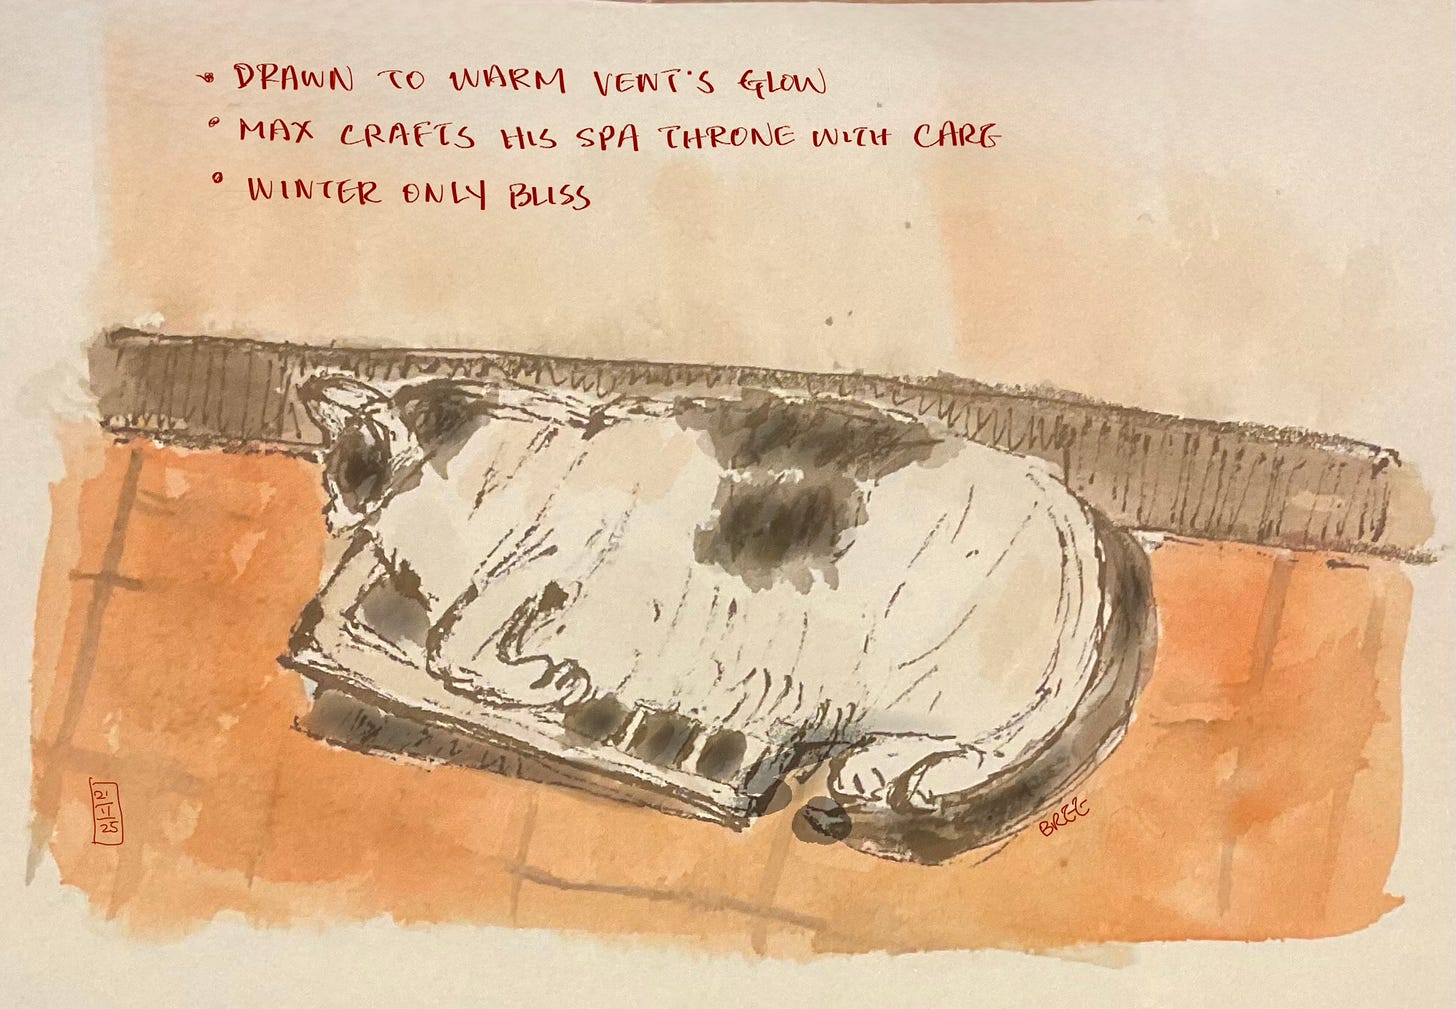 • DRAWN TO WARM VENT'S GLOW
• MAX CRAFTS HIS SPA THRONE WITH CARE
• WINTER ONLY BLISS
21
11
25
BREE